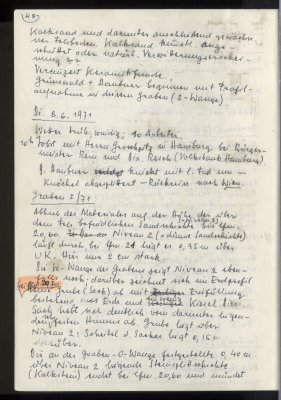 (48)
Kalksand und darunter anschließend gewachsener
felsboden. Kalksand künstl. ange-
schüttet oder natürl. Verwitterungserschei-
nung ??
Vereinzelt Keramikfunde.
Grünwald + Hautner beginnen mit Profil-
aufnahme in diesem Graben (S-Wange)
Di. 8.6.1971
Wetter trüb, windig; 10 Arbeiter
10h Jobst mit Herrn in Hainburg bei Bürger-
meister Rein und Dir. Resch (Volksbank Hainburg)
H. Hautner knickt mit l. Fuß um -
Knöchel abgesplittert - Rückreise nach Wien.
Graben 2/71
Abbau des Materiales auf der Höhe der über
dem fest befindlichen Sandschichte bei lfm.
20,60, Niveau 2 (= dünne Sandschichte)
läuft durch, bei lfm. 21 liegt er 0,95 m über
UK. Hier nur 2 cm stark.
In W-Wange des Grabens zeigt Niveau 2 eben-
falls noch; darüber zeichnet sich im Erdprofil
Grube (Sack) mit Einfüllung
bestehend aus Erde und Kiesel im
Sack hebt sich deutlich vom darunter liegen-
den festen Humus ab. Grube liegt über
Niveau 2: Scheitel d. Sackes liegt 0,15 m
darüber.
Bei an der Graben-O-Wange festgestellte, 0,40 m
über Niveau 2 liegende Steinsplittschichte
(Kalkstein) endet bei lfm 20,60 und mündet